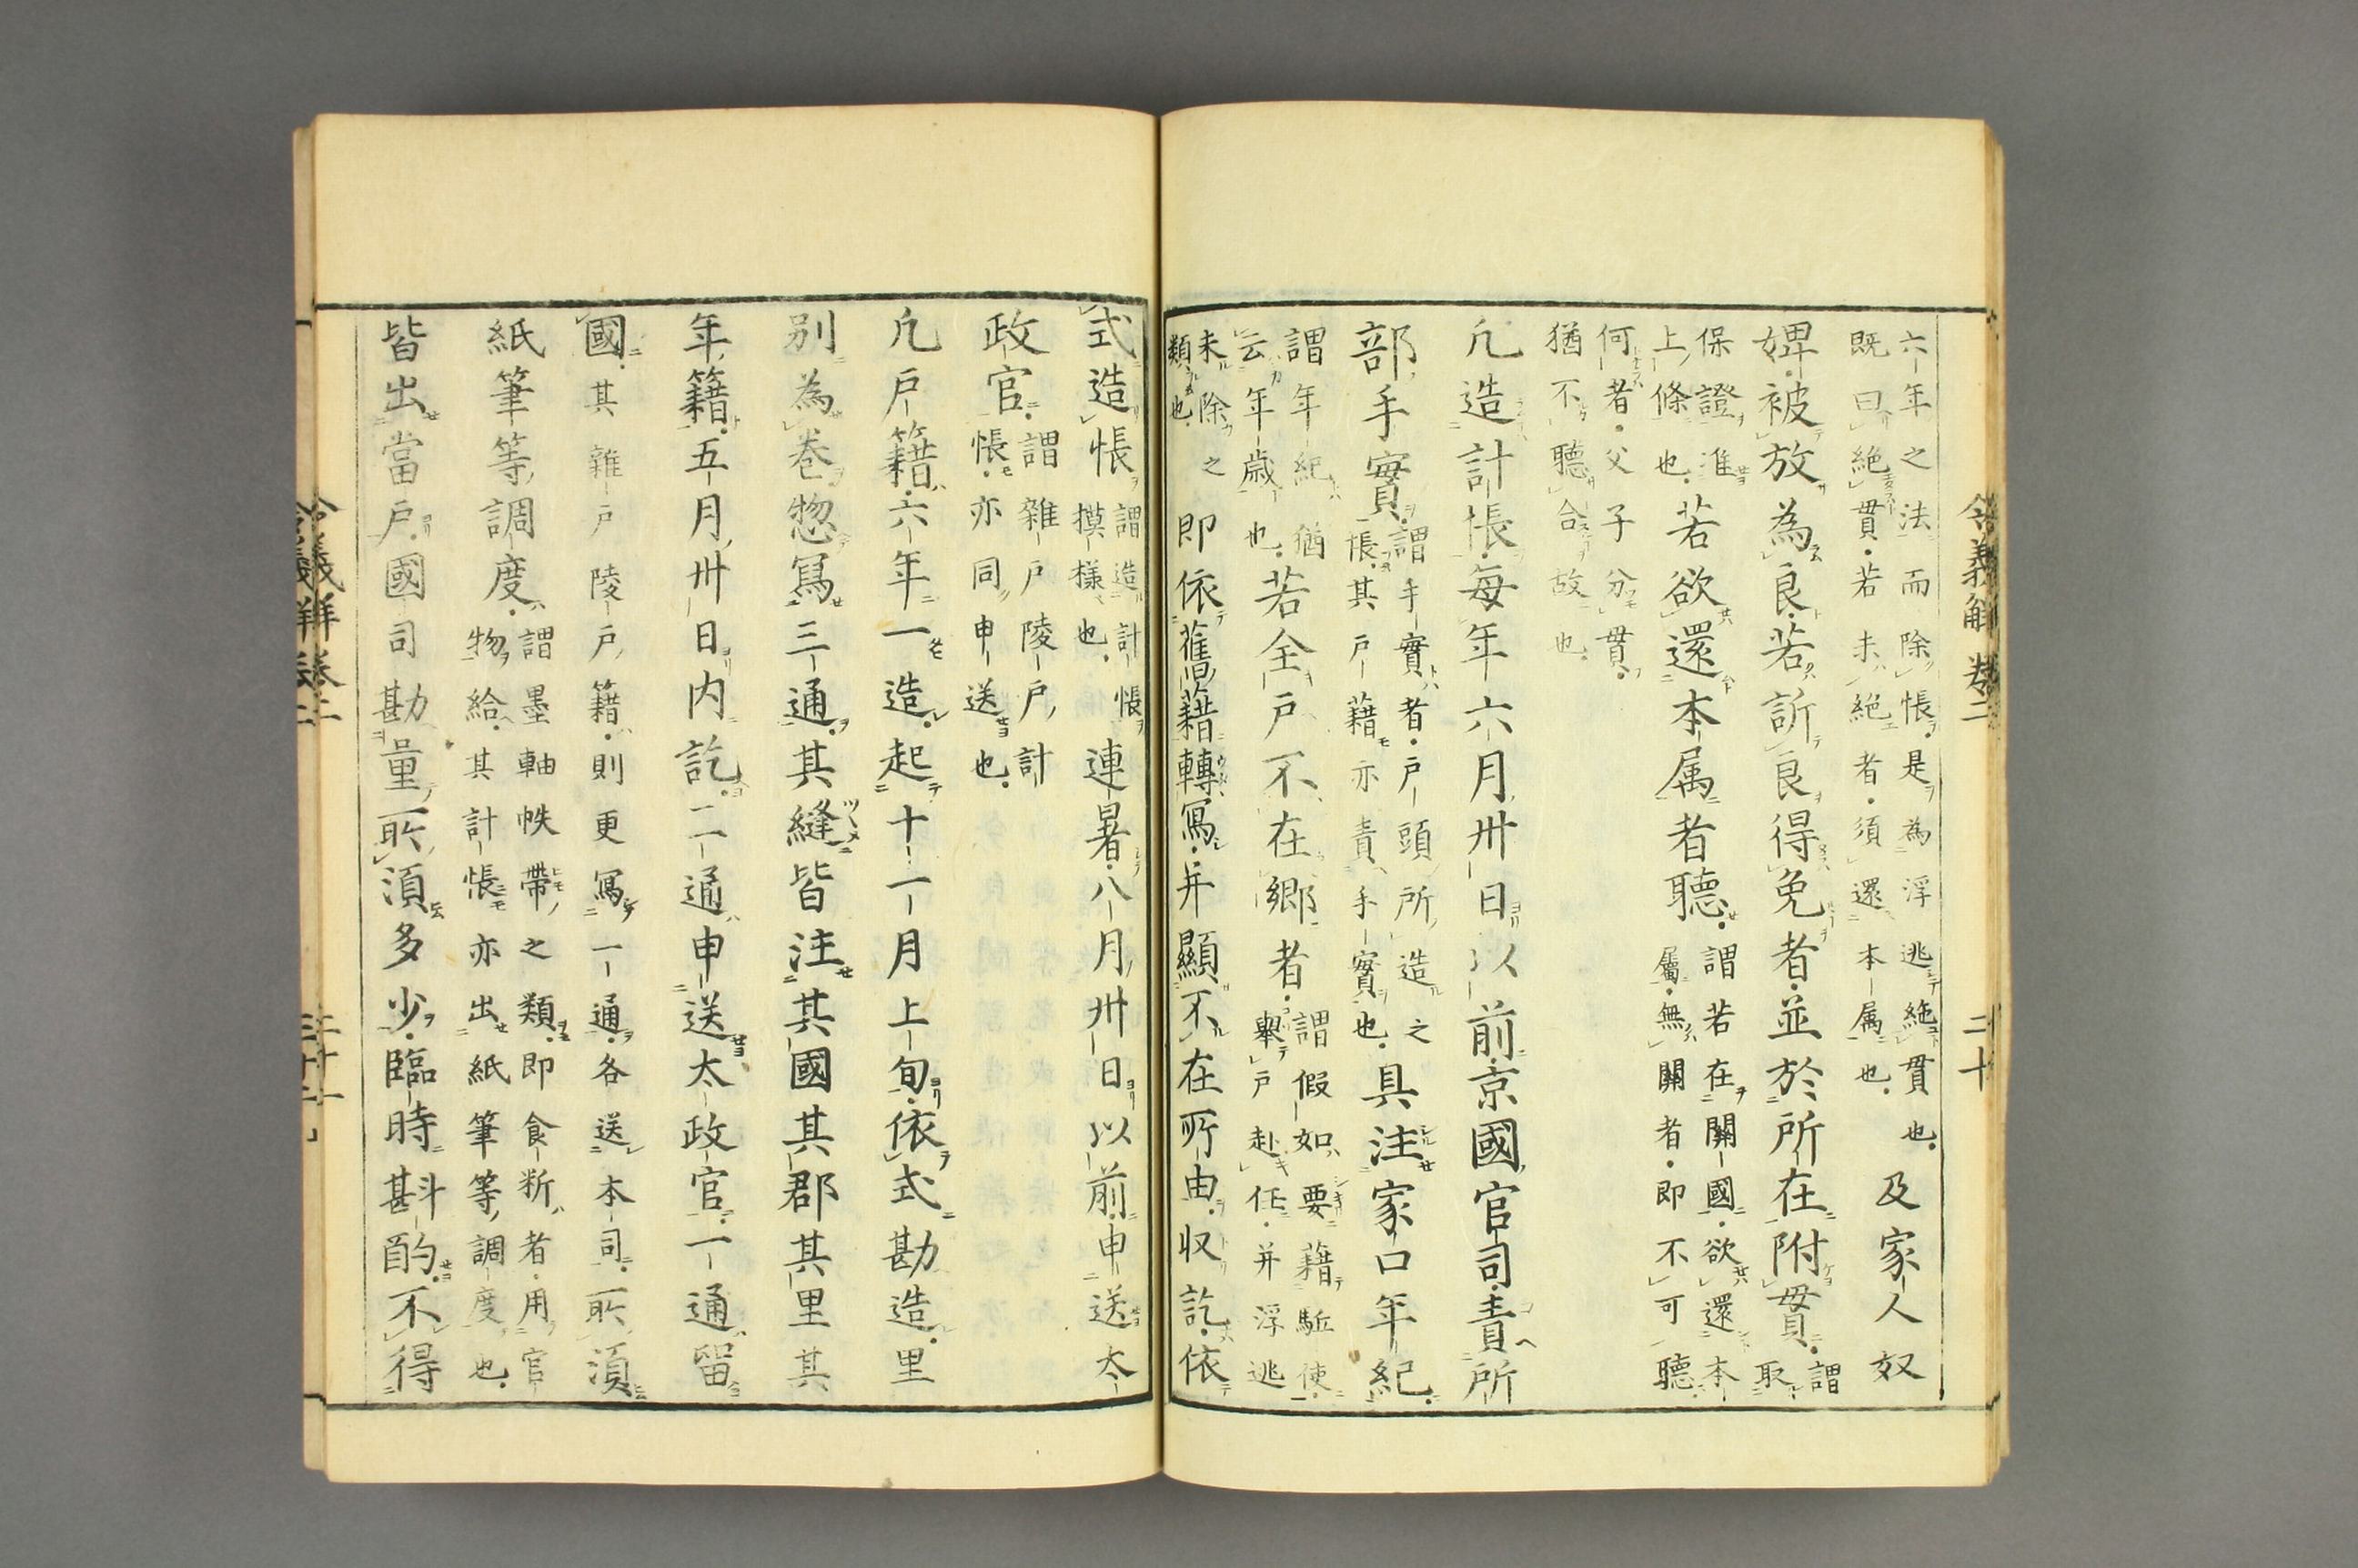 六年之法而除帳是為浮逃絶貫也
既曰絶貫若未絶者須還本属也
及家人奴
婢被放為良若訴良得免者並於所在附貫
謂取
保證准
上條也
若欲還本属者聽
謂若在關國欲還本
屬無關者即不可聽
何者父子分貫
猶不聽合故也
凢造計帳每年六月卅日以前京國官司責所
部手實
謂手實者戸頭所造之
帳其戸籍亦責手實也
具注家口年紀
謂年紀猶
云年歳也
若全戸不在郷者
謂假如要籍駈使
擧戸赴任并浮逃
未除之
類也
即依舊籍轉寫并顯不在所由収訖依
令義解 卷二 二十
式造帳
謂造計帳
摸様也
連署八月卅日以前申送太
政官
謂雜戸陵戸計
帳亦同申送也
凢戸籍六年一造起十一月上旬依式勘造里
別為巻惣寫三通其縫皆注其國其郡其里其
年籍五月卅日内訖二通申送太政官一通留
國其雜戸陵戸籍則更寫一通各送本司所湏
紙筆等調度
謂墨軸帙帶之類即食断者用官
物給其計帳亦出紙筆等調度也
皆出當戸國司勘量所湏多少臨時斟酌不得
令義解卷二 二十一